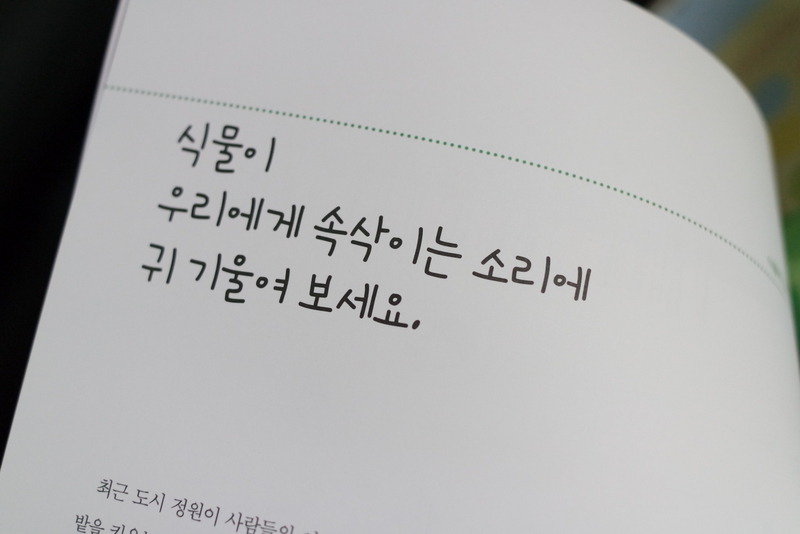 식물이
우리에게 속삭이는 소리에
귀 기울여 보세요.
최근 도시 정원이 사람들의
밭을